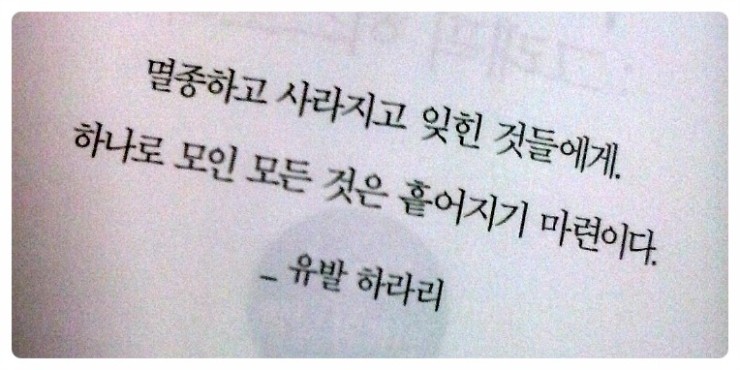 멸종하고 사라지고 잊힌 것들에게.
하나로 모인 모든 것은 흩어지기 마련이다.
_ 유발 하라리